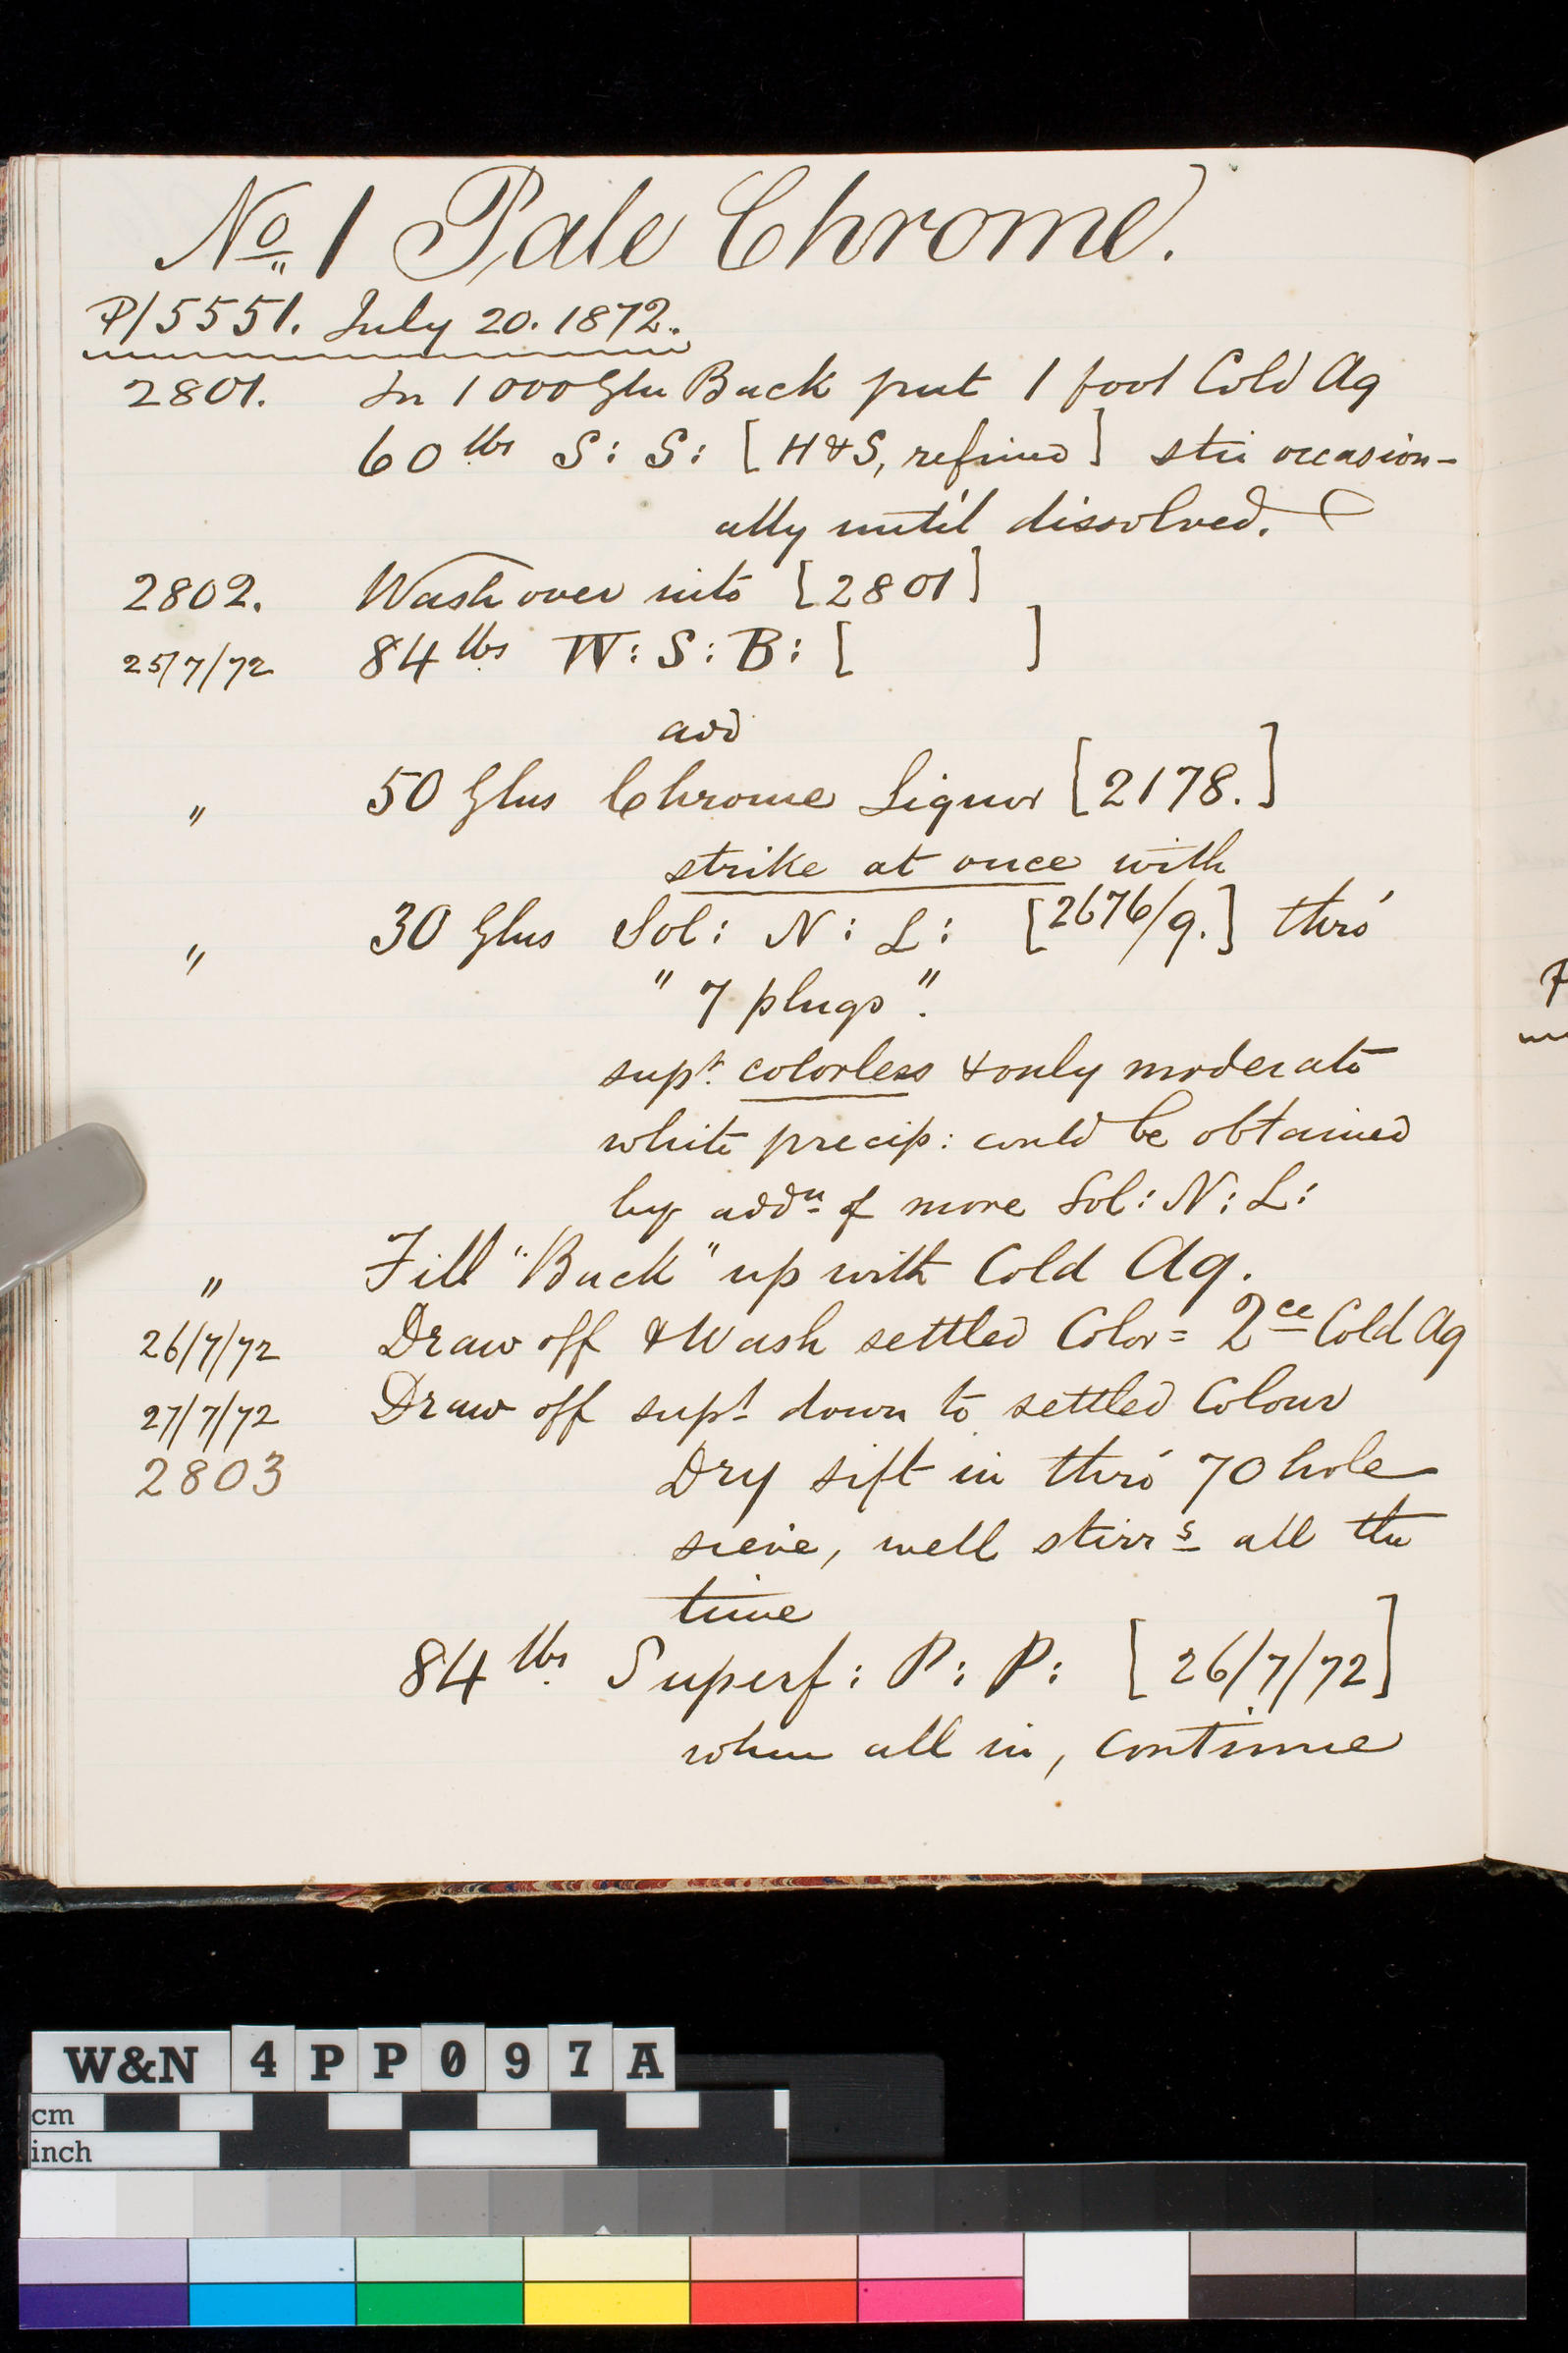 No 1 Pale Chrome.
P/5551. July 20. 1872.
2801. In 1000 Gln Back put 1 foot Cold Aq
60 lbs S: S: [H&S, refined] stir occasion-
ally until dissolved.
2802. Wash over into [2801]
25/7/72 84 lbs W: S: B: [ ]
add
" 50 Glns Chrome Liquor [2178.]
strike at once with
" 30 Glns Sol: N: L: [2676/9.] thro'
"7 plugs".
supt. colorless & only moderate
white precip: could be obtained
by addn of more Sol: N: L:
" Fill "Back" up with Cold Aq.
26/7/72 Draw off & Wash settled Color = 2ce Cold Aq
27/7/72 Draw off supt down to settled Colour
2803 Dry sift in thro' 70 hole
sieve, well stirrg all the
time
84 lbs Superf: P: P: [26/7/72]
when all in, continue
W&N 4PP097A
cm
inch